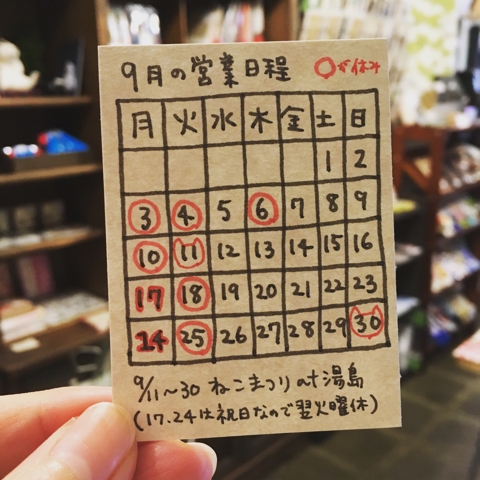 9月の営業日程 ○が休み
月 火 水 木 金 土 日
1 2
3 4 5 6 7 8 9
10 11 12 13 14 15 16
17 18 19 20 21 22 23
24 25 26 27 28 29 30
9/11~30 ねこまつり at 湯島
(17.24は祝日なので翌火曜休)